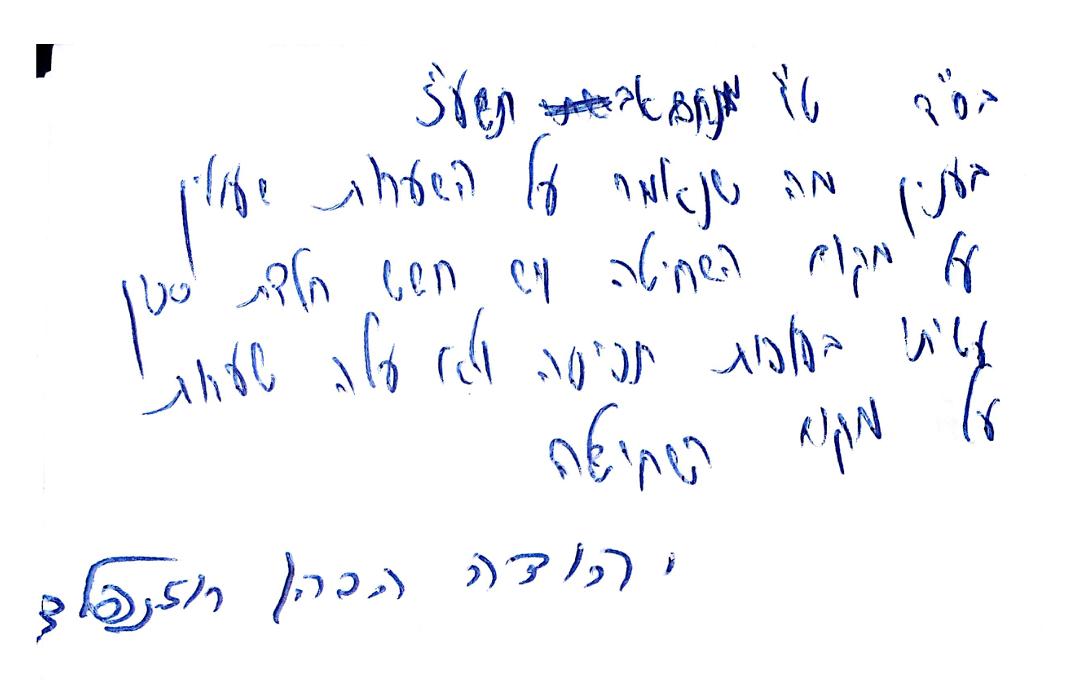 בס"ד ט"ז מנחם אב תשע"ג
בענין מה שנאמר על השערות שעולין
על מקום השחיטה ויש חשש חלדת סכין
עשיתי בעופות תפיסה ולא עלה שערות
על מקום השחיטה
יהודה הכהן רוזנפלד